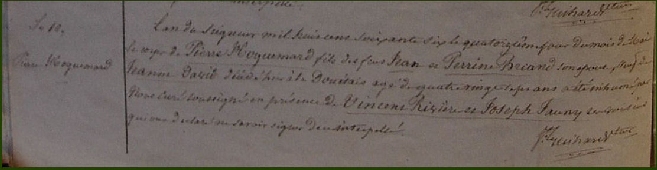 interpellé
Le 14,
Pierre Hoquemard
L'an du Seigneur mil huit cent soixante six le quatorzième jour du mois d'
le corps de Pierre Hoquemard fils des feus Jean et Perrine Briand son épouse,
Jeanne David décédé hier à la agé de quatre vingt sept ans a été inhumé par
nous curé soussigné en présence de Vincent Rivière et Joseph Fauny
qui ont déclaré ne savoir signer de ce interpellé.